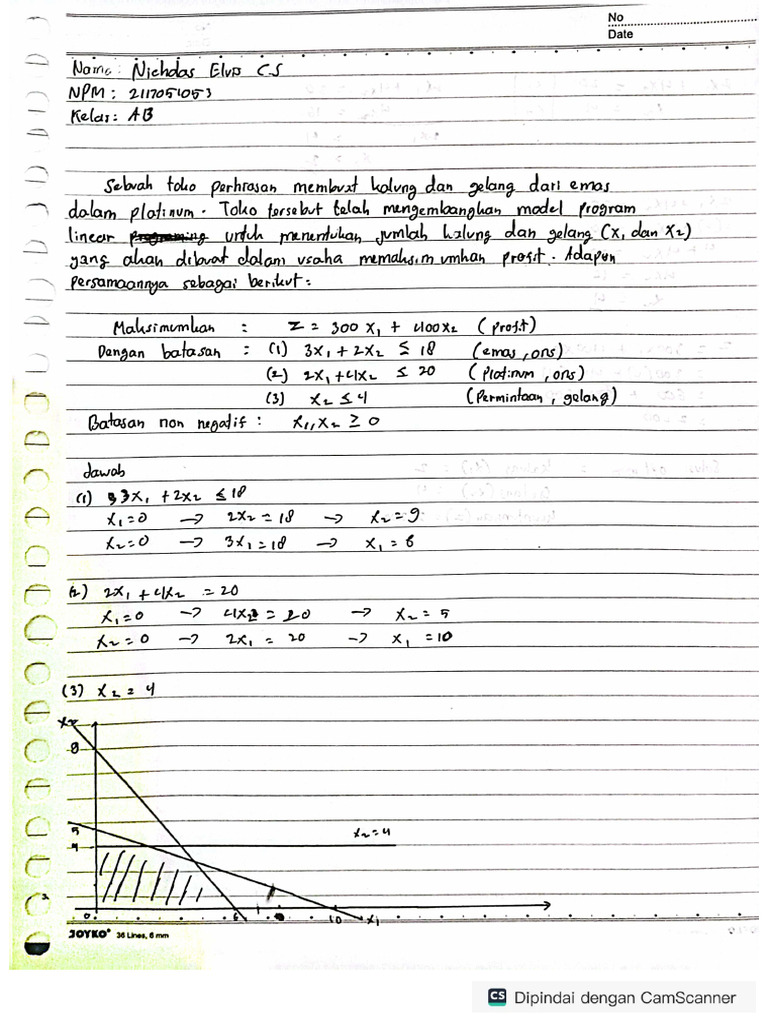 No
Date
Nama : Nicholas Elvo C.S
NPM : 2117051053
Kelas : AB
Sebuah toko perhiasan membuat kalung dan gelang dari emas
dalam platinum. Toko tersebut telah mengembangkan model program
linear untuk menentukan jumlah kalung dan gelang (x1 dan x2)
yang akan dibuat dalam usaha memaksimumkan profit. Adapun
persamaannya sebagai berikut :
Maksimumkan : Z = 300 x1 + 400 x2 (profit)
Dengan batasan : (1) 3x1 + 2x2 ≤ 18 (emas, ons)
(2) 2x1 + 4x2 ≤ 20 (Platinum, ons)
(3) x2 ≤ 4 (Permintaan, gelang)
Batasan non negatif : x1, x2 ≥ 0
Jawab
(1) 3x1 + 2x2 ≤ 18
x1 = 0 → 2x2 = 18 → x2 = 9
x2 = 0 → 3x1 = 18 → x1 = 6
(2) 2x1 + 4x2 = 20
x1 = 0 → 4x2 = 20 → x2 = 5
x2 = 0 → 2x1 = 20 → x1 = 10
(3) x2 = 4
x2
9
5
4
x2 = 4
0 6 10 x1
JOYKO 36 Lines, 6 mm
CS Dipindai dengan CamScanner